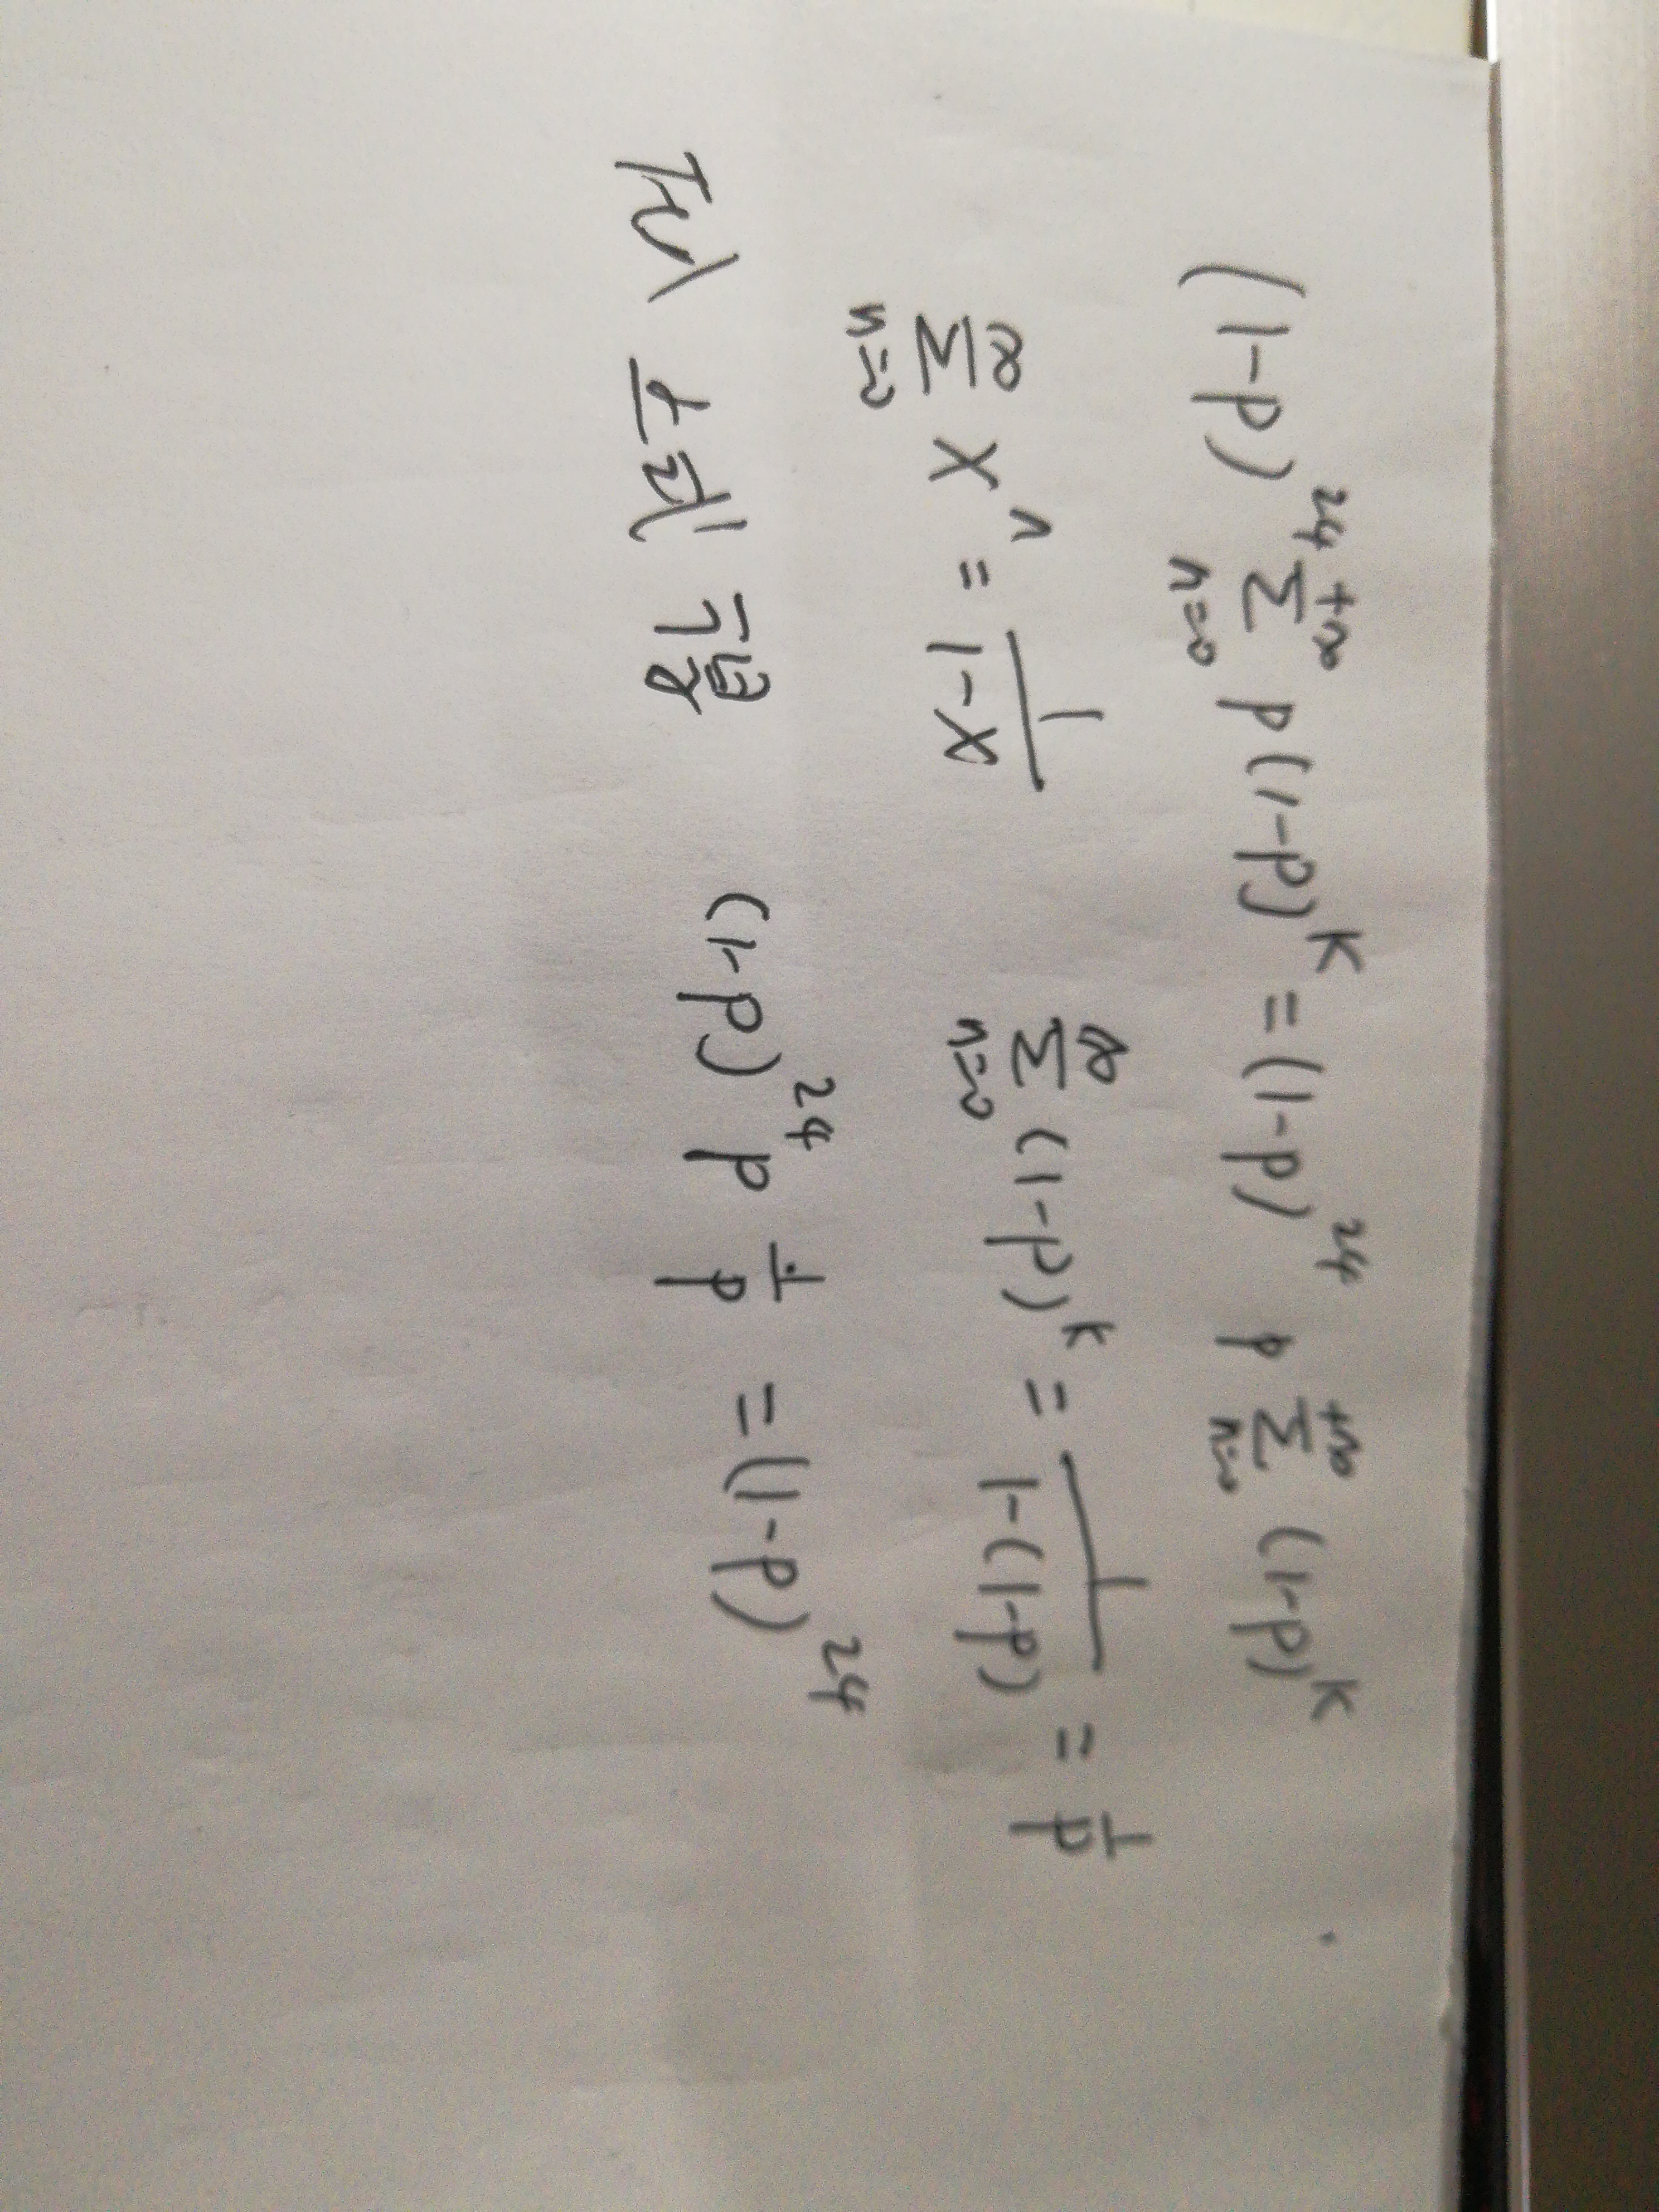 (1-p)^{24} \sum_{n=0}^{+\infty} p(1-p)^K = (1-p)^{24} p \sum_{n=0}^{+\infty} (1-p)^K
\sum_{n=0}^{\infty} x^n = \frac{1}{1-x} \sum_{n=0}^{\infty} (1-p)^K = \frac{1}{1-(1-p)} = \frac{1}{p}
(1-p)^{24} p \frac{1}{p} = (1-p)^{24}